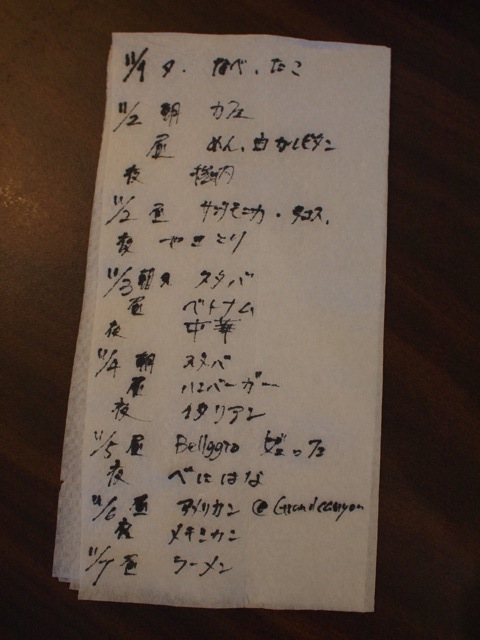 11/1 夕. なべ、たこ
11/2 朝 カフェ
昼 めん、白
夜
11/2 昼 サンタモニカ・タコス.
夜 やきとり
11/3 朝 スタバ
昼 ベトナム
夜 中華
11/4 朝 スタバ
昼 ハンバーガー
夜 イタリアン
11/5 昼 Bellagio ビュッフェ
夜 べにはな
11/6 昼 アメリカン @ Grandcanyon
夜 メキシカン
11/7 昼 ラーメン